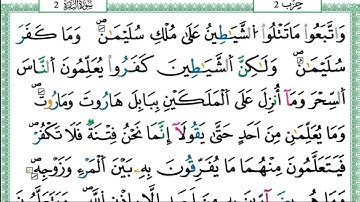 حزب 2 سورة البقرة 2
وَاتَّبَعُوا مَا تَتْلُوا الشَّيَاطِينُ عَلَىٰ مُلْكِ سُلَيْمَانَ وَمَا كَفَرَ
سُلَيْمَانُ وَلَٰكِنَّ الشَّيَاطِينَ كَفَرُوا يُعَلِّمُونَ النَّاسَ
السِّحْرَ وَمَا أُنزِلَ عَلَى الْمَلَكَيْنِ بِبَابِلَ هَارُوتَ وَمَارُوتَ
وَمَا يُعَلِّمَانِ مِنْ أَحَدٍ حَتَّىٰ يَقُولَا إِنَّمَا نَحْنُ فِتْنَةٌ فَلَا تَكْفُرْ
فَيَتَعَلَّمُونَ مِنْهُمَا مَا يُفَرِّقُونَ بِهِ بَيْنَ الْمَرْءِ وَزَوْجِهِ